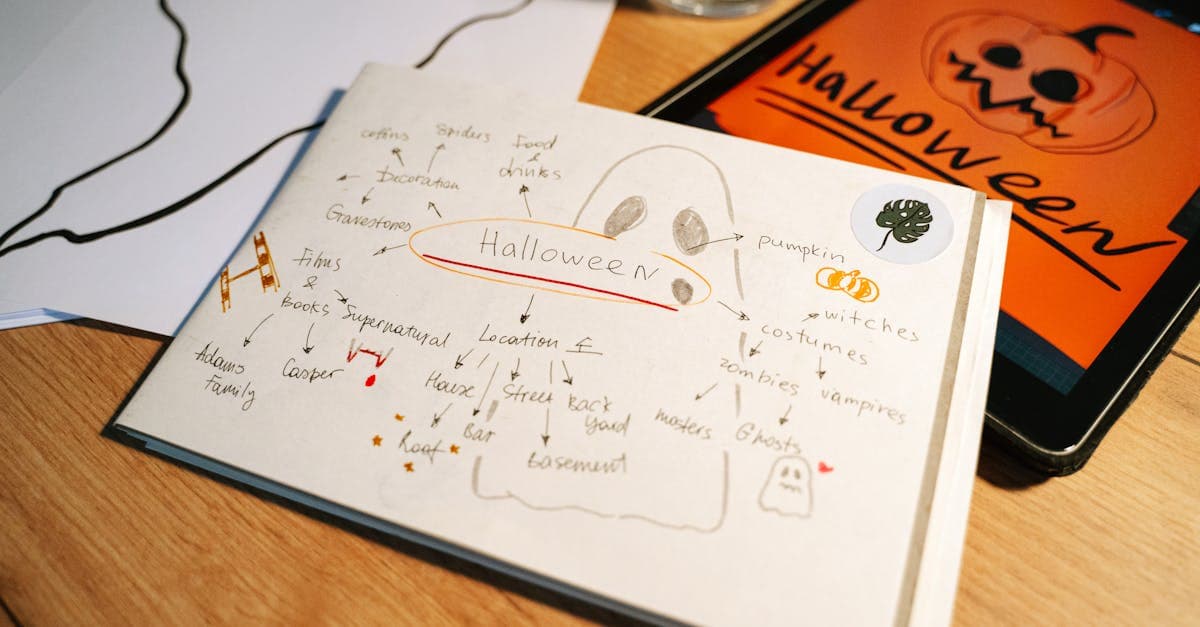 coffins
Spiders
Food
&
drinks
Decoration
Gravestones
Halloween
Films
&
Books
Supernatural
Adams
Family
Casper
Location
House
Street
Back
Yard
Roof
Bar
Basement
pumpkin
witches
costumes
zombies
vampires
masters
Ghosts
Halloween